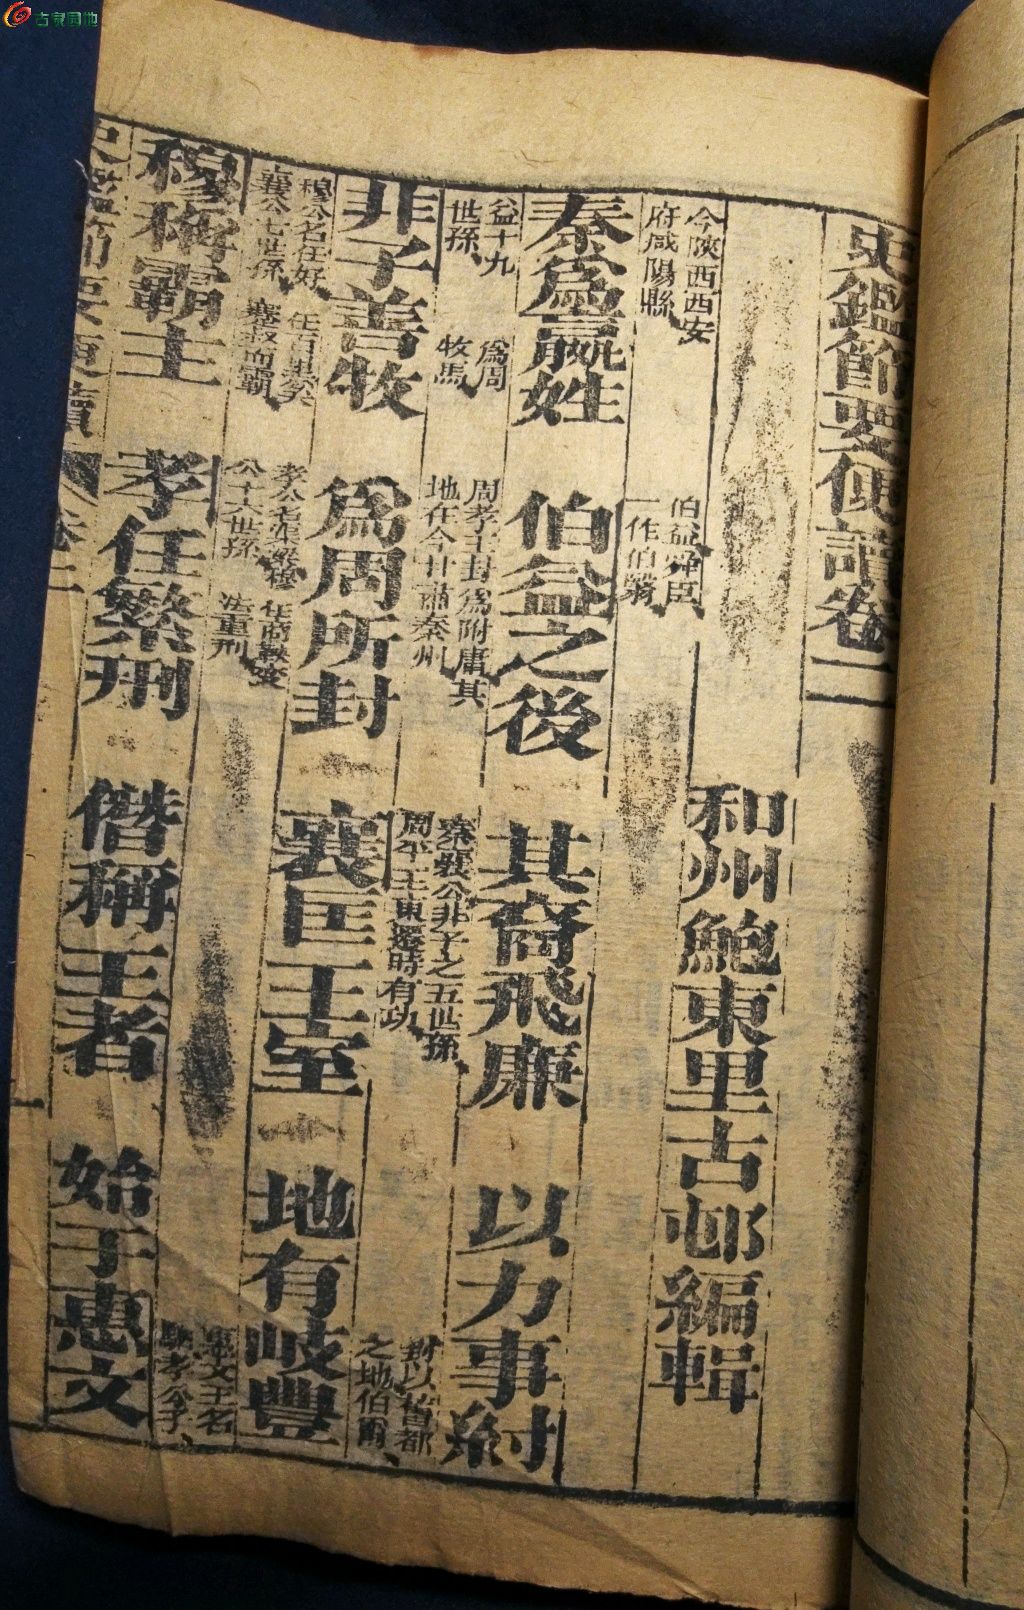 史鑑節要便讀卷二
和州鮑東里古邨編輯
今陝西西安
府咸陽縣
伯益舜臣
一作伯翳
秦為嬴姓 伯益之後 其裔飛廉 以力事紂
益十九
世孫
為周
牧馬
周孝王封為附庸其
地在今甘肅秦州
秦襄公非子之五世孫
周平王東遷時有功
封以舊都
之地伯爵
非子善牧 為周所封 襄匡王室 地有岐豐
穆公名任好
襄公七世孫
任百里奚
蹇叔而霸
孝公名渠梁穆
公十六世孫
任商鞅變
法重刑
惠文王名
駟孝公子
穆稱霸主 孝任繁刑 僭稱王者 始于惠文
史鑑節要便讀 卷二 一
古家园地